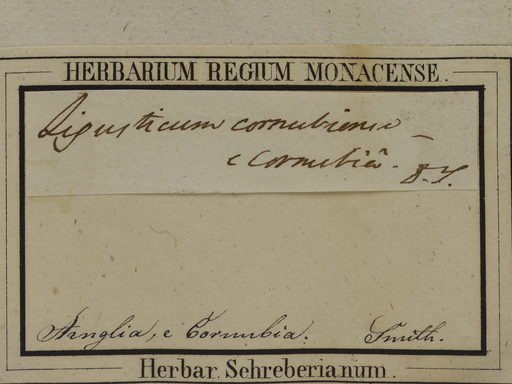 HERBARIUM REGIUM MONACENSE.
Ligusticum cornubiense
e Cornubiâ.
Anglia, e Cornubia. Smith.
Herbar. Schreberianum.